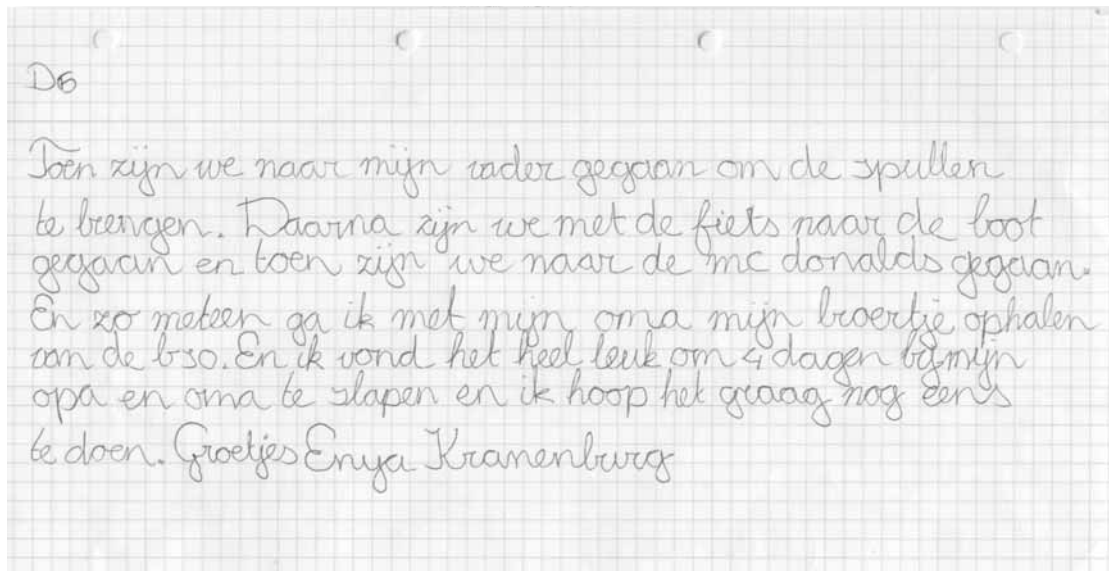 D6
Toen zijn we naar mijn vader gegaan om de spullen
te brengen. Daarna zijn we met de fiets naar de boot
gegaan en toen zijn we naar de mc donalds gegaan.
En zo meteen ga ik met mijn oma mijn broertje ophalen
van de bso. En ik vond het heel leuk om 4 dagen bij mijn
opa en oma te slapen en ik hoop het graag nog eens
te doen. Groetjes Enya Kranenburg